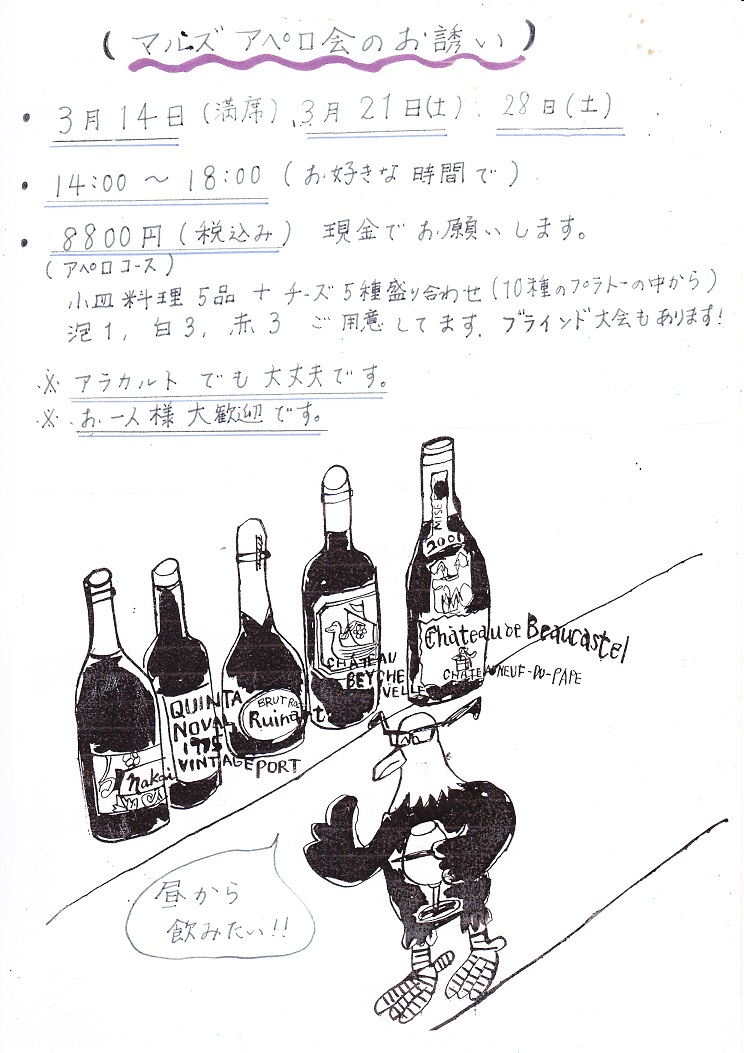 (マルズ アペロ会のお誘い)
・3月14日(満席)、3月21日(土)、28日(土)
・14:00 〜 18:00 (お好きな時間で)
・8800円(税込み) 現金でお願いします。
(アペロコース)
小皿料理5品+チーズ5種盛り合わせ(10種のプラトーの中から)
泡1, 白3, 赤3 ご用意してます. ブラインド大会もあります!
※アラカルトでも大丈夫です。
※お一人様大歓迎です。
MISE
2001
Château de Beaucastel
CHÂTEAUNEUF-DU-PAPE
CHÂTEAU
BEYCHE
VELLE
BRUT ROSE
Ruinart
QUINTA
NOVAL
1975
VINTAGE PORT
Nakai
昼から
飲みたい!!